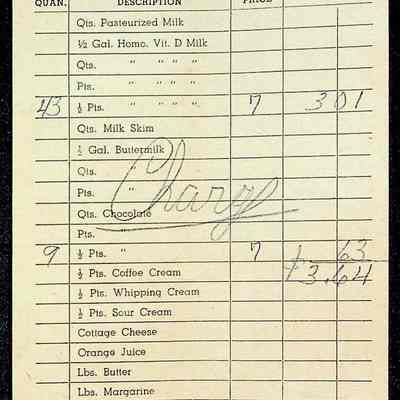 QUAN. DESCRIPTION PRICE
Qts. Pasteurized Milk
½ Gal. Homo. Vit. D Milk
Qts. " " " "
Pts. " " " "
43 ½ Pts. " " " " 7 3 01
Qts. Milk Skim
½ Gal. Buttermilk
Qts. "
Pts. "
Charge
Qts. Chocolate
Pts. "
9 ½ Pts. " 7 63
½ Pts. Coffee Cream $3.64
½ Pts. Whipping Cream
½ Pts. Sour Cream
Cottage Cheese
Orange Juice
Lbs. Butter
Lbs. Margarine